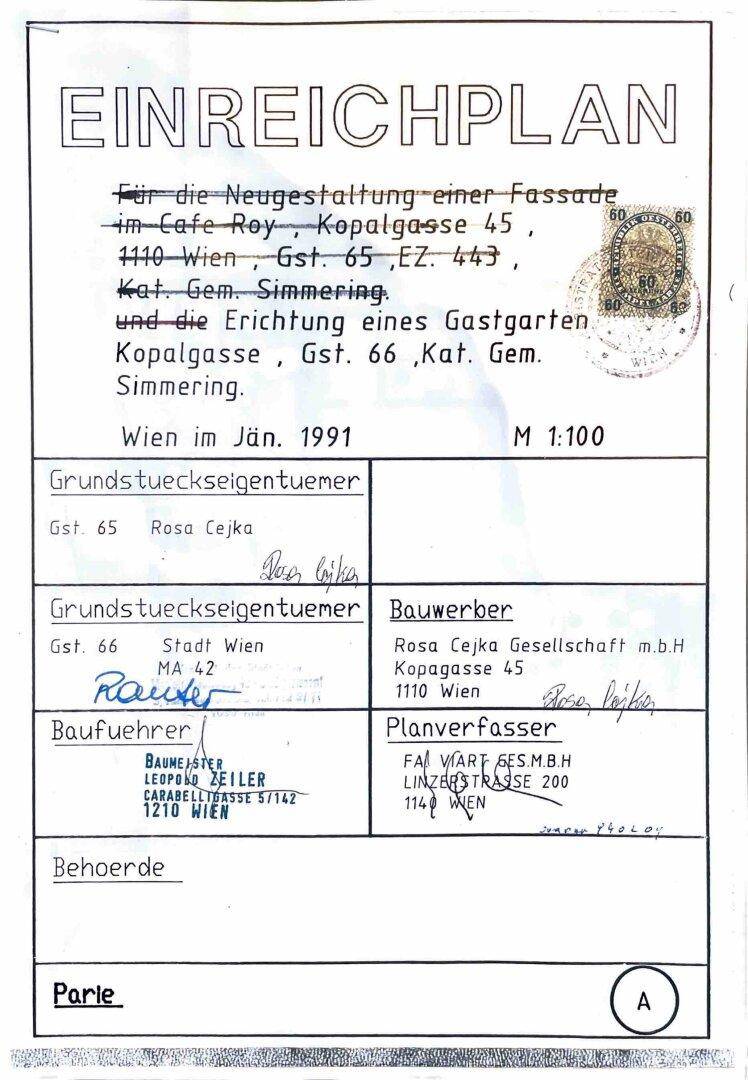 EINREICHPLAN
Für die Neugestaltung einer Fassade
im Cafe Roy , Kopalgasse 45 ,
1110 Wien , Gst. 65 ,EZ. 443 ,
Kat. Gem. Simmering.
und die Erichtung eines Gastgarten
Kopalgasse , Gst. 66 ,Kat. Gem.
Simmering.
60 60
REPUBLIK OESTERREICH
60
60 60
WIEN
Wien im Jän. 1991 M 1:100
Grundstueckseigentuemer
Gst. 65 Rosa Cejka
Rosa Cejka
Grundstueckseigentuemer
Gst. 66 Stadt Wien
MA 42
Bauwerber
Rosa Cejka Gesellschaft m.b.H
Kopagasse 45
1110 Wien
Rosa Cejka
Baufuehrer
BAUMEISTER
LEOPOLD ZEILER
CARABELLIGASSE 5/142
1210 WIEN
Planverfasser
FA. VIART GES.M.B.H
LINZERSTRASSE 200
1140 WIEN
Behoerde
Parie
A